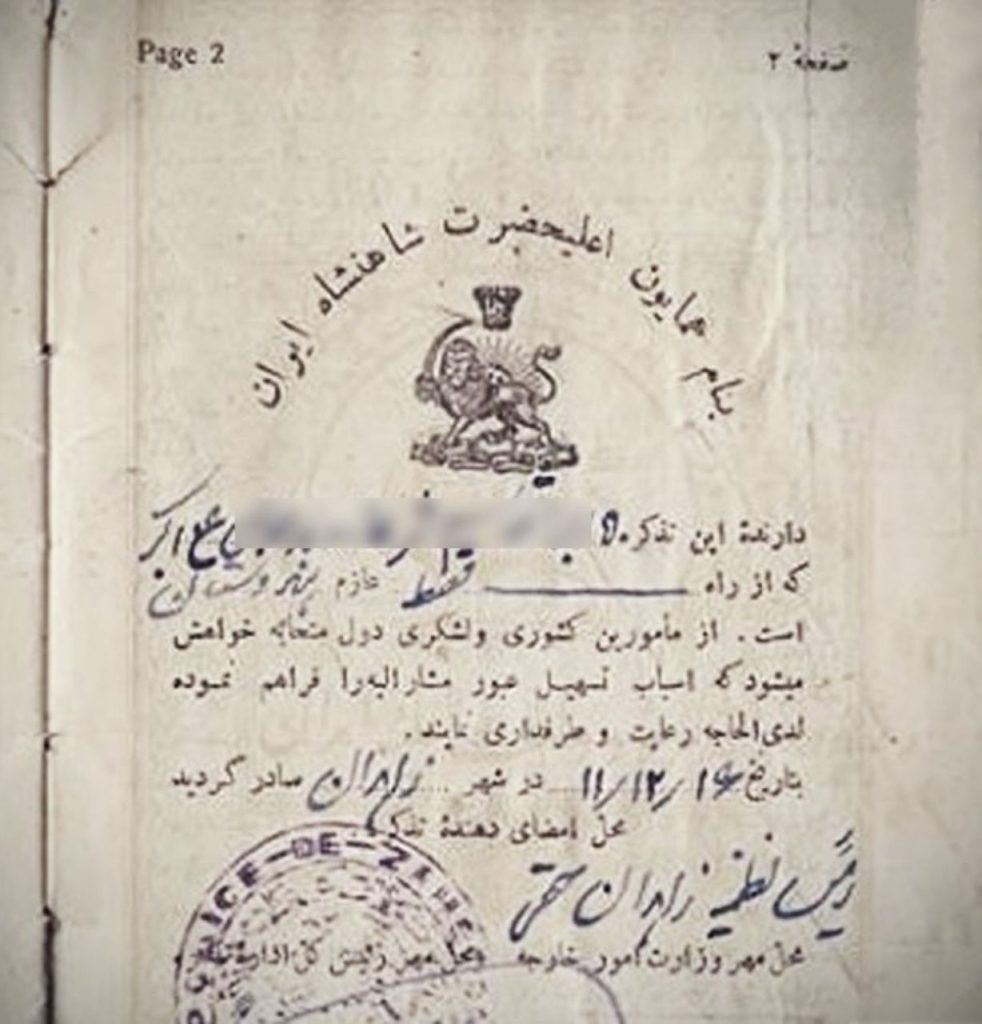 Page 2
صفحهٔ ۲
بنام همایون اعلیحضرت شاهنشاه ایران
دارندهٔ این تذکره علی اکبر
که از راه فقط عازم هندوستان
است . از مأمورین کشوری ولشکری دول متحابه خواهش
میشود که اسباب تسهیل عبور مشارالیه‌را فراهم نموده
لدی‌الحاجه رعایت و طرفداری نمایند .
بتاریخ ۱۶/۱۲/۱۱ در شهر زاهدان صادر گردید
محل امضای دهندهٔ تذکره
رئیس نظمیه زاهدان
محل مهر وزارت امور خارجه محل مهر رئیس کل اداره
POLICE-DE-ZAHE